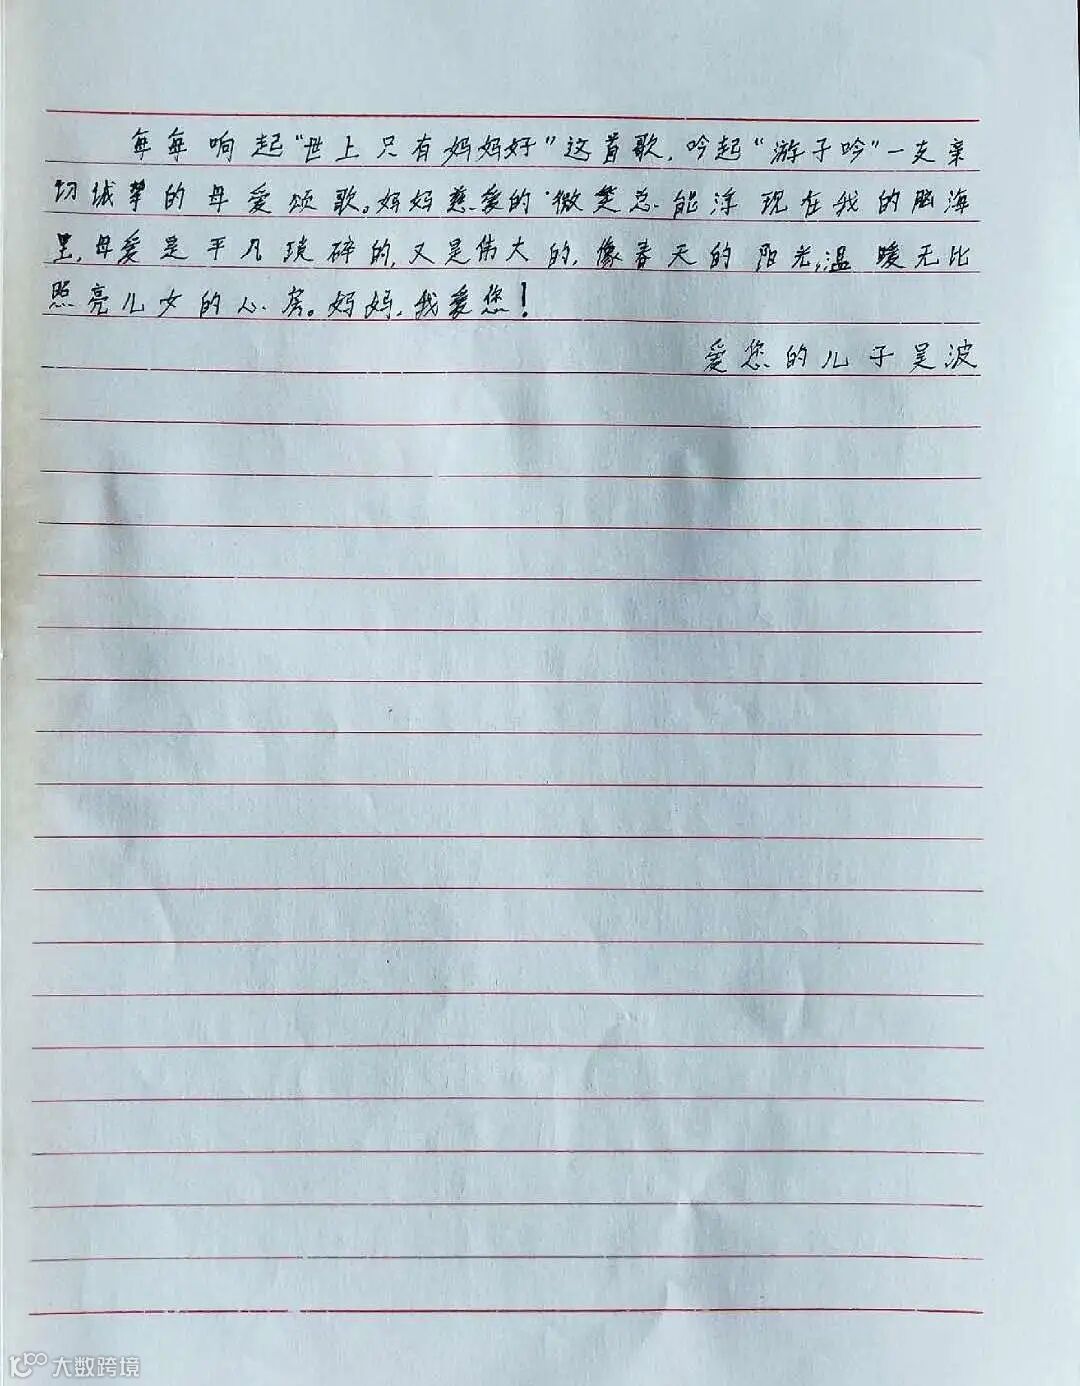 每每响起“世上只有妈妈好”这首歌,吟起“游子吟”一支亲
切诚挚的母爱颂歌。妈妈慈爱的微笑总能浮现在我的脑海
里,母爱是平凡琐碎的,又是伟大的,像春天的阳光,温暖无比
照亮儿女的心房。妈妈,我爱您!
爱您的儿子吴波
大数跨境